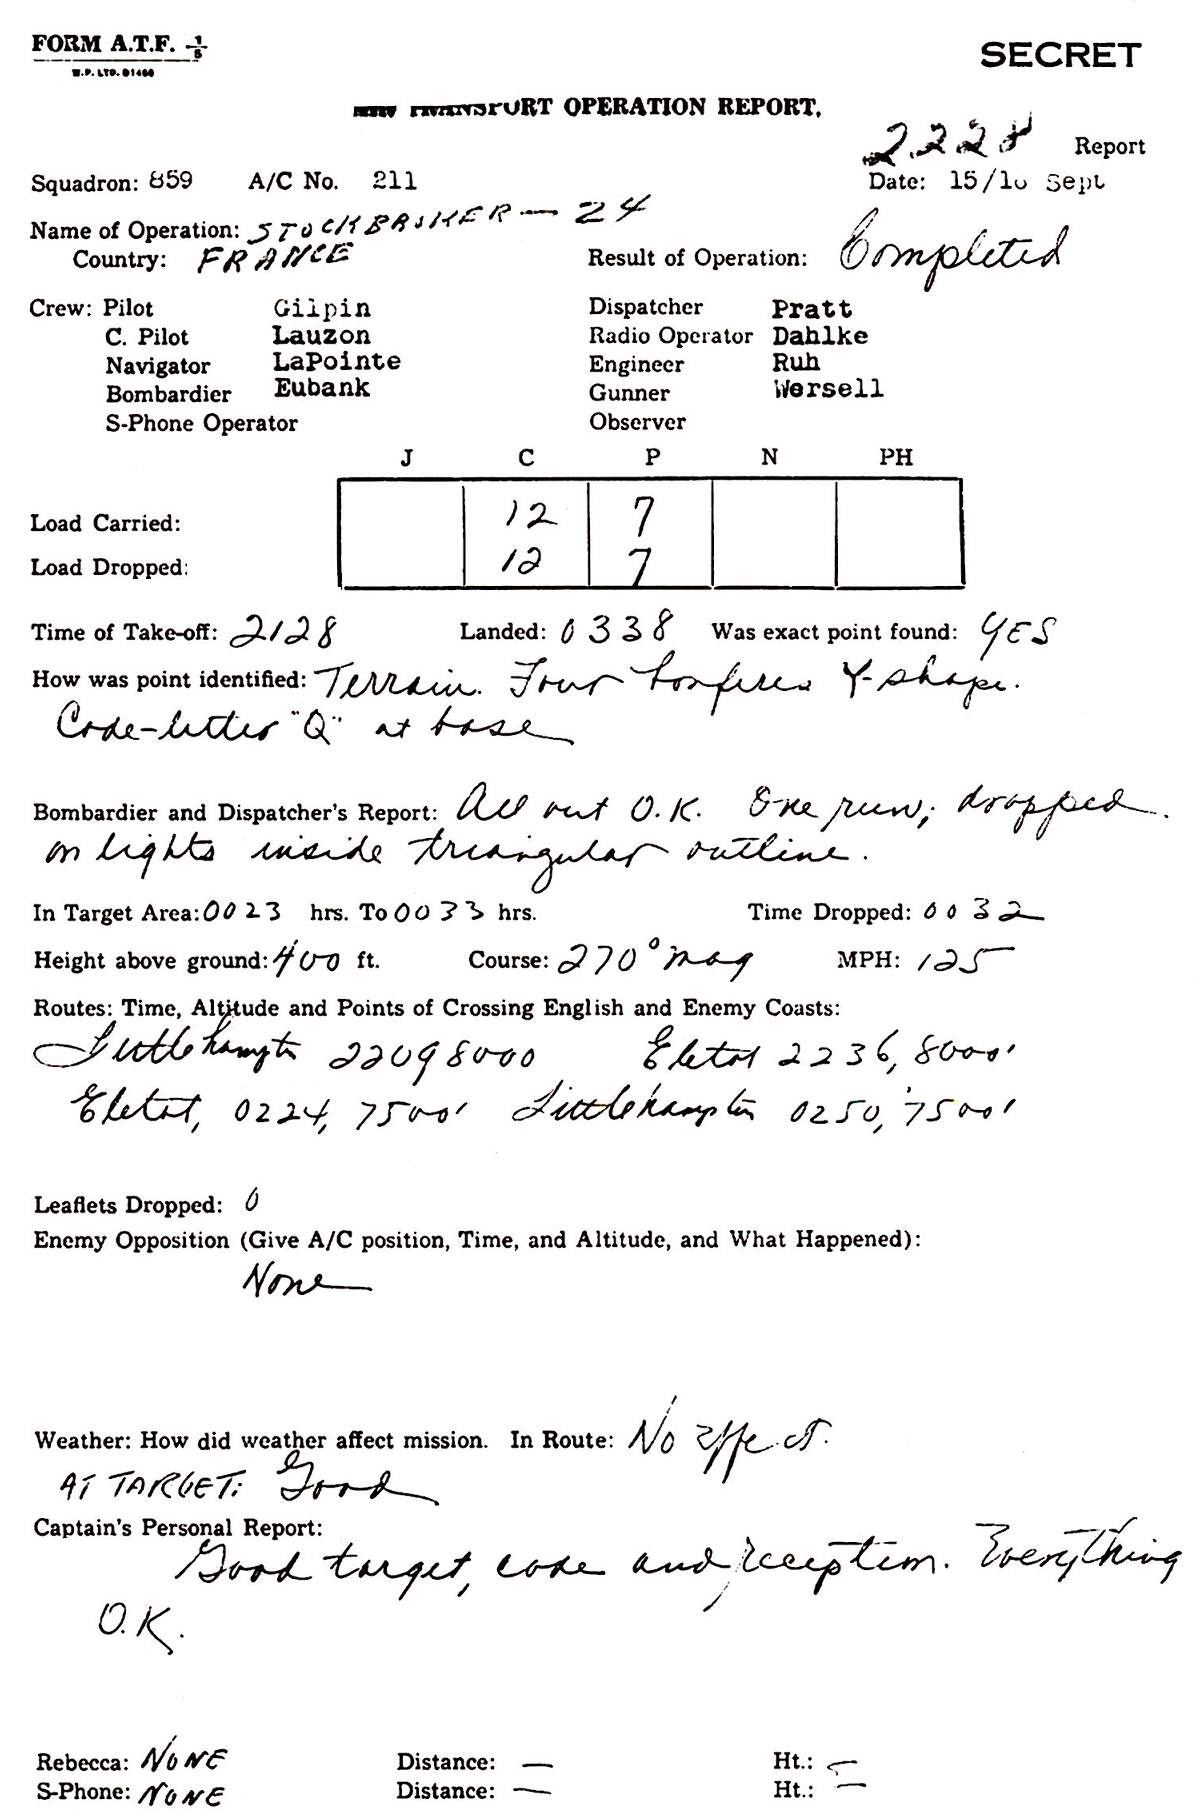 FORM A.T.F. 1/5
SECRET
W.P. LTD. 81460
TRANSPORT OPERATION REPORT.
2228 Report
Squadron: 859 A/C No. 211 Date: 15/16 Sept
Name of Operation: STOCKBROKER — 24
Country: FRANCE Result of Operation: Completed
Crew: Pilot Gilpin Dispatcher Pratt
C. Pilot Lauzon Radio Operator Dahlke
Navigator LaPointe Engineer Ruh
Bombardier Eubank Gunner Wersell
S-Phone Operator Observer
J C P N PH
Load Carried: 12 7
Load Dropped: 12 7
Time of Take-off: 2128 Landed: 0338 Was exact point found: YES
How was point identified: Terrain. Four bonfires Y-shape.
Code-letter "Q" at base
Bombardier and Dispatcher's Report: All out O.K. One run; dropped
on lights inside triangular outline.
In Target Area: 0023 hrs. To 0033 hrs. Time Dropped: 0032
Height above ground: 400 ft. Course: 270° mag MPH: 125
Routes: Time, Altitude and Points of Crossing English and Enemy Coasts:
Littlehampton 2209 8000 Eletot 2236, 8000'
Eletot, 0224, 7500' Littlehampton 0250, 7500'
Leaflets Dropped: 0
Enemy Opposition (Give A/C position, Time, and Altitude, and What Happened):
None
Weather: How did weather affect mission. In Route: No effect.
AT TARGET: Good
Captain's Personal Report:
Good target, code and reception. Everything
O.K.
Rebecca: NONE Distance: — Ht.: —
S-Phone: NONE Distance: — Ht.: —